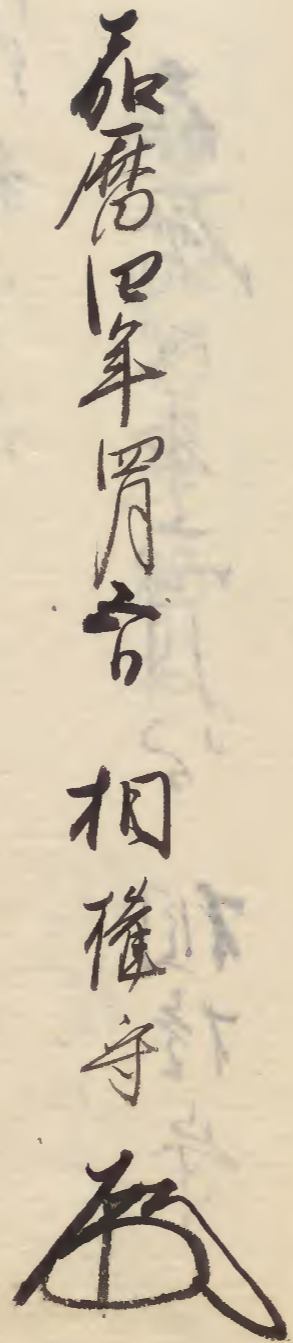 嘉暦四年四月五日 相模守